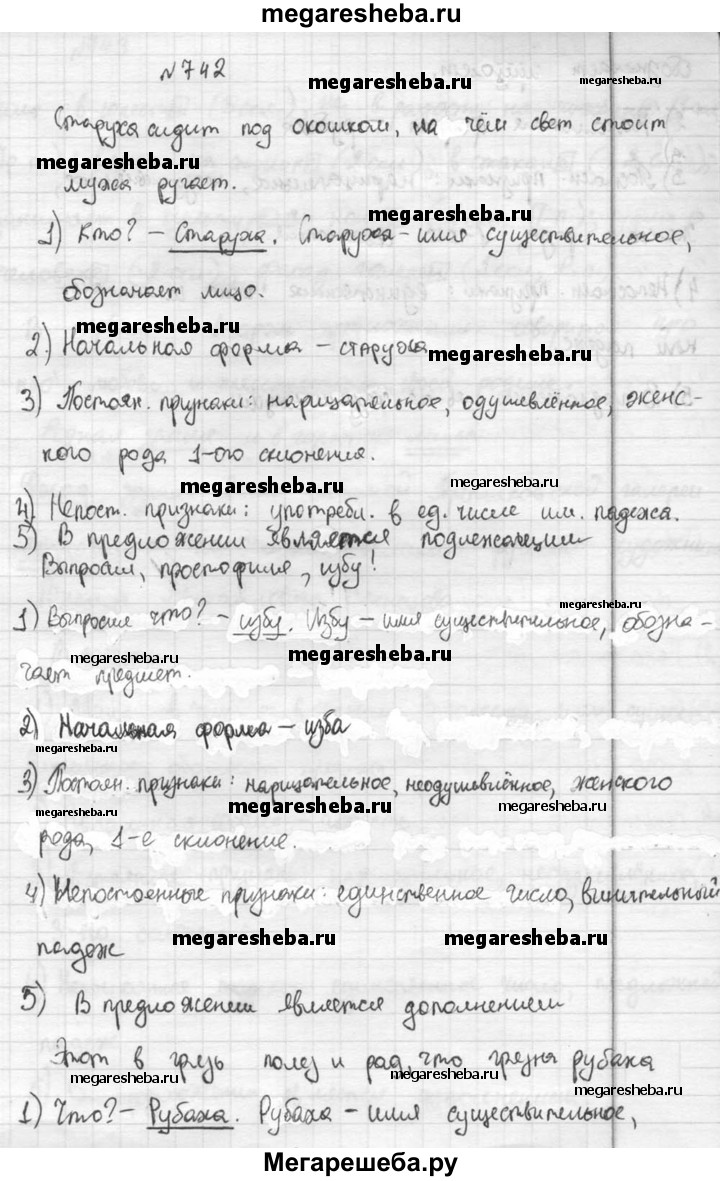 megaresheba.ru
№742
megaresheba.ru
Старуха сидит под окошком, на чём свет стоит
megaresheba.ru
мужа ругает.
megaresheba.ru
1) Кто? – Старуха. Старуха – имя существительное,
обозначает лицо.
megaresheba.ru
2.) Начальная форма – старуха
megaresheba.ru
3) Постоян. признаки: нарицательное, одушевлённое, женс-
кого рода 1-ого склонения.
megaresheba.ru
megaresheba.ru
4) Непост. признаки: употребл. в ед. числе им. падежа.
5) В предложении является подлежащим
Выпросил, простофиля, избу!
megaresheba.ru
1) Выпросил что? – избу. Избу – имя существительное, обозна-
megaresheba.ru
megaresheba.ru
чает предмет.
2) Начальная форма – изба
megaresheba.ru
3) Постоян. признаки: нарицательное, неодушевлённое, женского
megaresheba.ru
megaresheba.ru
рода, 1-е склонение.
megaresheba.ru
4) Непостоенные признаки: единственное число, винительный
падеж
megaresheba.ru
megaresheba.ru
5) В предложении является дополнением
Этот в грязь полез и рад, что грязна рубаха
megaresheba.ru
megaresheba.ru
megaresheba.ru
1) Что? – Рубаха. Рубаха – имя существительное,
Мегарешеба.ру